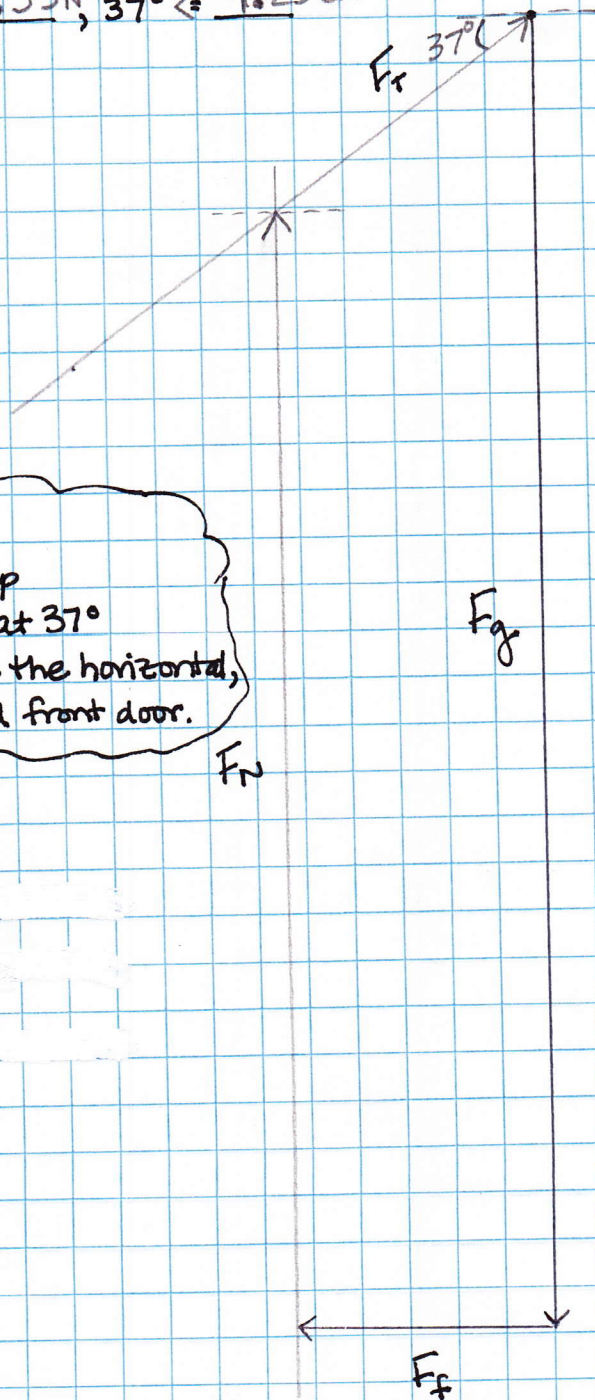 37°
F_T 37°
at 37°
the horizontal,
front door.
F_g
F_N
F_f